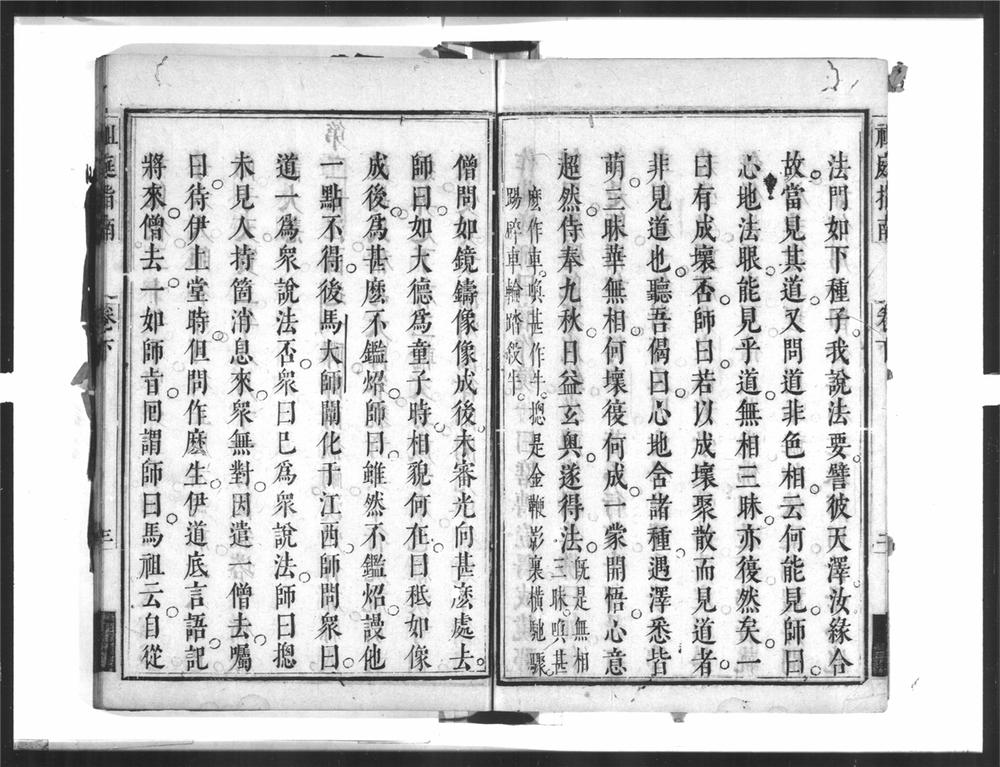 祖庭指南
卷下
二
法門如下種子我說法要譬彼天澤汝緣合
故當見其道又問道非色相云何能見師曰
心地法眼能見乎道無相三昧亦復然矣一
曰有成壞否師曰若以成壞聚散而見道者
非見道也聽吾偈曰心地含諸種遇澤悉皆
萌三昧華無相何壞復何成一蒙開悟心意
超然侍奉九秋日益玄奧遂得法既是無相
三昧喚甚
麼作車喚甚作牛摠是金鞭影裏橫馳驟
踢碎車輪踏殺牛
僧問如鏡鑄像像成後未審光向甚麼處去
師曰如大德為童子時相貌何在曰秪如像
成後為甚麼不鑑炤師曰雖然不鑑炤謾他
一點不得後馬大師闡化于江西師問衆曰
道一為衆說法否衆曰已為衆說法師曰摠
未見人持箇消息來衆無對因遣一僧去囑
曰待伊上堂時但問作麼生伊道底言語記
將來僧去一如師旨回謂師曰馬祖云自從
祖庭指南
卷下
三